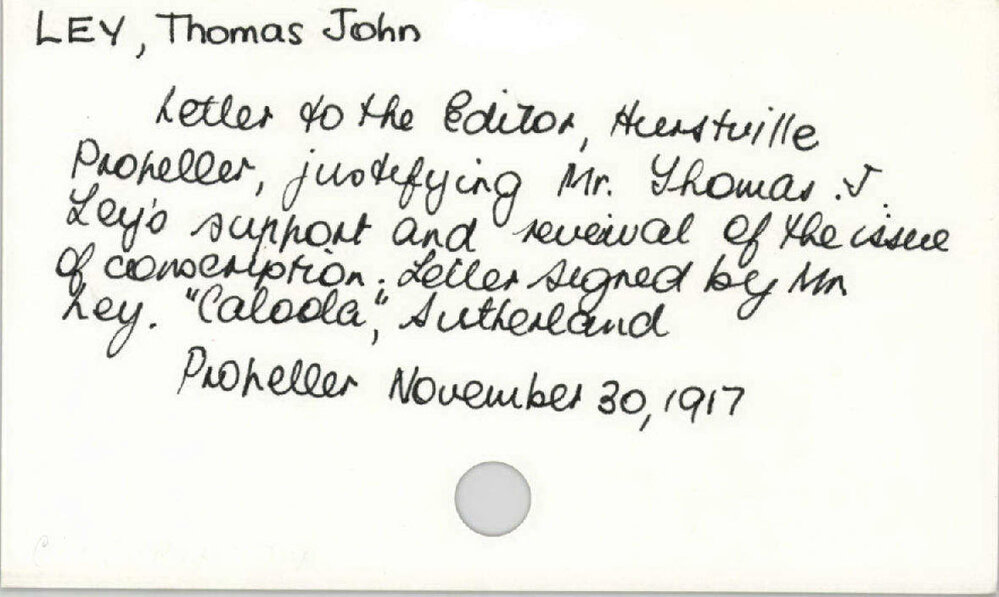 LEY, Thomas John
Letter to the Editor, Hurstville
Propeller, justifying Mr. Thomas J.
Ley's support and reveival of the issue
of conscription. Letter signed by Mr
Ley. "Caloola", Sutherland
Propeller November 30, 1917